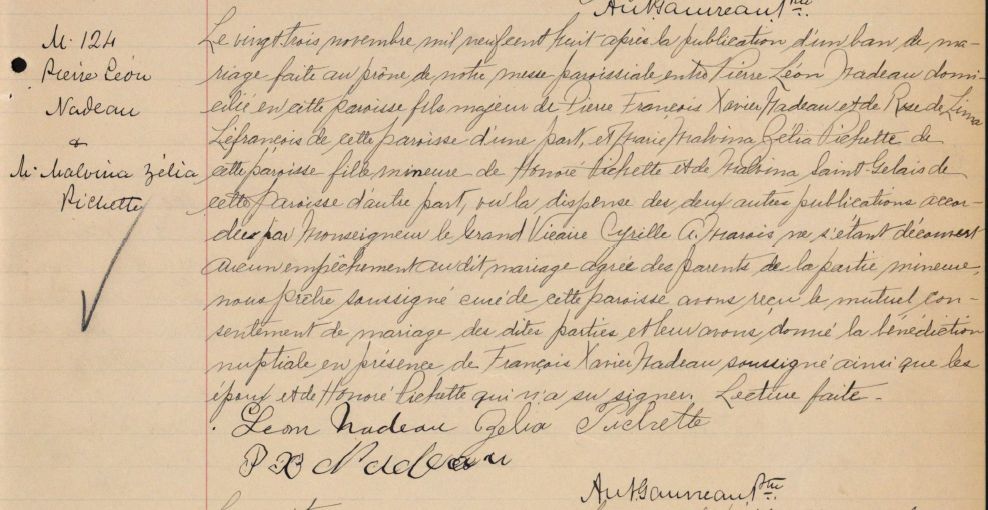 Ant Gauvreau Ptre
M. 124
Pierre Léon
Nadeau
&
M. Malvina Zélia
Pichette
Le vingt trois novembre mil neuf cent huit après la publication d'un ban de ma-
riage faite au prône de notre messe paroissiale entre Pierre Léon Nadeau domi-
cilié en cette paroisse fils majeur de Pierre François Xavier Nadeau et de Rose de Lima
Lefrançois de cette paroisse d'une part, et Marie Malvina Zélia Pichette de
cette paroisse fille mineure de Honoré Pichette et de Malvina Saint Gelais de
cette paroisse d'autre part, vu la dispense des deux autres publications accor-
dée par Monseigneur le Grand Vicaire Cyrille A. Marois ne s'étant découvert
aucun empêchement au dit mariage agréé des parents de la partie mineure,
nous prêtre soussigné curé de cette paroisse avons reçu le mutuel con-
sentement de mariage des dites parties et leur avons donné la bénédiction
nuptiale en présence de François Xavier Nadeau soussigné ainsi que les
époux et de Honoré Pichette qui n'a su signer. Lecture faite -
Léon Nadeau Zelia Pichette
Nadeau
Ant Gauvreau Ptre